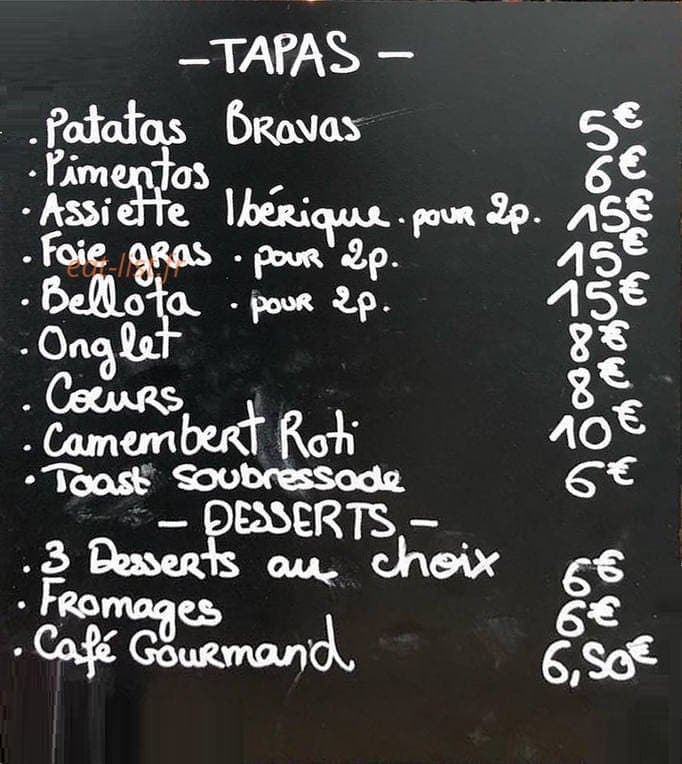 - TAPAS -
. Patatas Bravas 5€
. Pimentos 6€
. Assiette Ibérique . pour 2p. 15€
. Foie gras . pour 2p. 15€
eat-list.fr
. Bellota . pour 2p. 15€
. Onglet 8€
. Cœurs 8€
. Camembert Roti 10€
. Toast Soubressade 6€
- DESSERTS -
. 3 Desserts au choix 6€
. Fromages 6€
. Café Gourmand 6,50€